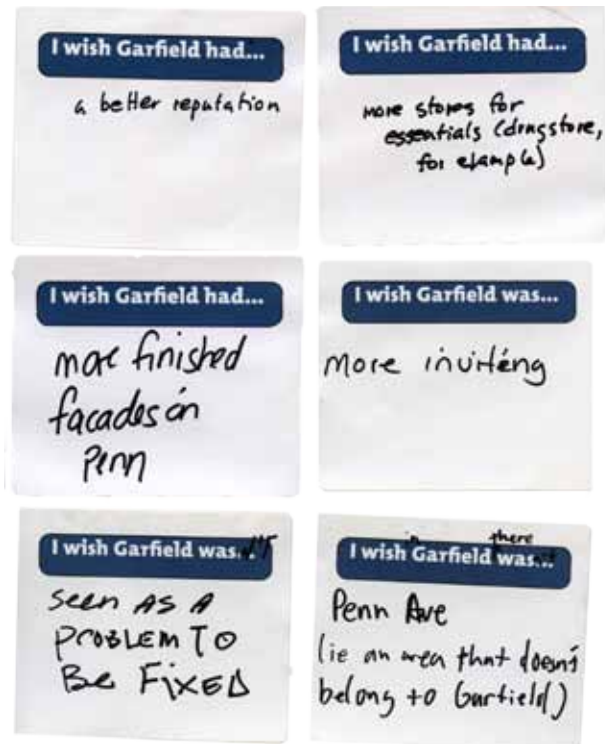 I wish Garfield had...
a better reputation
I wish Garfield had...
more stores for
essentials (drugstore,
for example)
I wish Garfield had...
more finished
facades on
Penn
I wish Garfield was...
more inviting
I wish Garfield was...n'T
seen AS A
PROBLEM TO
BE FIXED
in there
I wish Garfield was...
Penn Ave
(ie an area that doesn't
belong to Garfield)